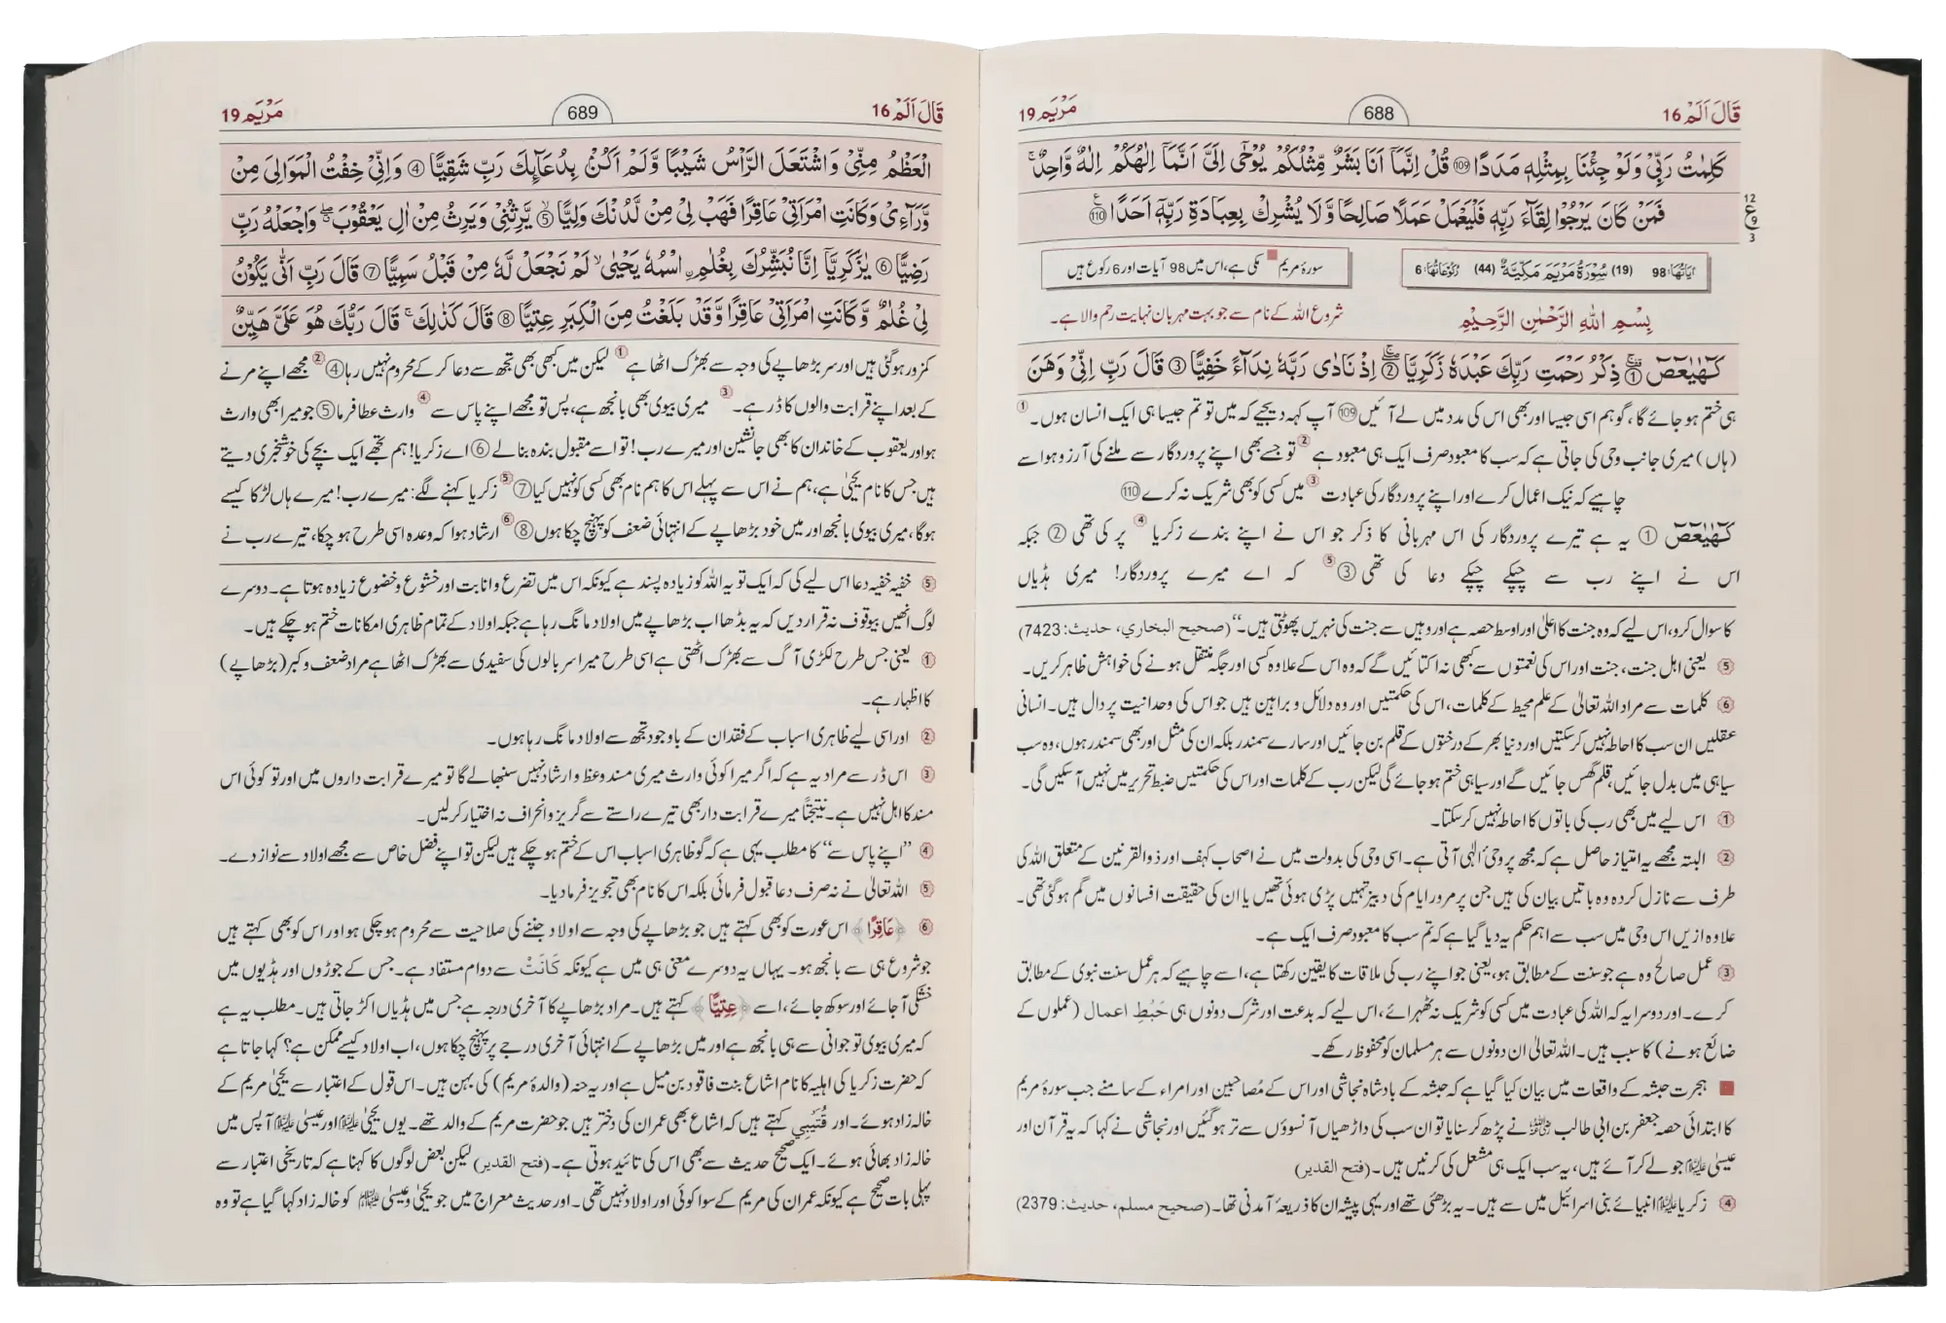 قَالَ اَلَمْ 16
688
مَرْيَم 19
كَلِمٰتُ رَبِّيْ وَلَوْ جِئْنَا بِمِثْلِهٖ مَدَدًا ⑩⑨ قُلْ اِنَّمَآ اَنَا بَشَرٌ مِّثْلُكُمْ يُوْحٰٓى اِلَيَّ اَنَّمَآ اِلٰهُكُمْ اِلٰهٌ وَّاحِدٌ ۚ
فَمَنْ كَانَ يَرْجُوْا لِقَآءَ رَبِّهٖ فَلْيَعْمَلْ عَمَلًا صَالِحًا وَّلَا يُشْرِكْ بِعِبَادَةِ رَبِّهٖٓ اَحَدًا ⑪⓪
12 ع 9 3
اٰيَاتُهَا: 98 (19) سُوْرَةُ مَرْيَمَ مَكِّيَّةٌ (44) رُكُوْعَاتُهَا: 6
سورۂ مریم مکی ہے، اس میں 98 آیات اور 6 رکوع ہیں
بِسْمِ اللّٰهِ الرَّحْمٰنِ الرَّحِيْمِ
شروع اللہ کے نام سے جو بہت مہربان نہایت رحم والا ہے۔
كٓهٰيٰعٓصٓ ① ذِكْرُ رَحْمَتِ رَبِّكَ عَبْدَهٗ زَكَرِيَّا ② اِذْ نَادٰى رَبَّهٗ نِدَآءً خَفِيًّا ③ قَالَ رَبِّ اِنِّيْ وَهَنَ
ہی ختم ہو جائے گا، گو ہم اسی جیسا اور بھی اس کی مدد میں لے آئیں 109 آپ کہہ دیجیے کہ میں تو تم جیسا ہی ایک انسان ہوں۔ ①
(ہاں) میری جانب وحی کی جاتی ہے کہ سب کا معبود صرف ایک ہی معبود ہے ② تو جسے بھی اپنے پروردگار سے ملنے کی آرزو ہو اسے
چاہیے کہ نیک اعمال کرے اور اپنے پروردگار کی عبادت ③ میں کسی کو بھی شریک نہ کرے 110
كٓهٰيٰعٓصٓ ① یہ ہے تیرے پروردگار کی اس مہربانی کا ذکر جو اس نے اپنے بندے زکریا ④ پر کی تھی ② جبکہ
اس نے اپنے رب سے چپکے چپکے دعا کی تھی ③ ⑤ کہ اے میرے پروردگار! میری ہڈیاں
کا سوال کرو، اس لیے کہ وہ جنت کا اعلیٰ اور اوسط حصہ ہے اور وہیں سے جنت کی نہریں پھوٹتی ہیں۔“ (صحیح البخاري، حدیث: 7423)
⑤ یعنی اہل جنت، جنت اور اس کی نعمتوں سے کبھی نہ اکتائیں گے کہ وہ اس کے علاوہ کسی اور جگہ منتقل ہونے کی خواہش ظاہر کریں۔
⑥ کلمات سے مراد اللہ تعالیٰ کے علم محیط کے کلمات، اس کی حکمتیں اور وہ دلائل و براہین ہیں جو اس کی وحدانیت پر دال ہیں۔ انسانی
عقلیں ان سب کا احاطہ نہیں کر سکتیں اور دنیا بھر کے درختوں کے قلم بن جائیں اور سارے سمندر بلکہ ان کی مثل اور بھی سمندر ہوں، وہ سب
سیاہی میں بدل جائیں، قلم گھس جائیں گے اور سیاہی ختم ہو جائے گی لیکن رب کے کلمات اور اس کی حکمتیں ضبط تحریر میں نہیں آسکیں گی۔
① اس لیے میں بھی رب کی باتوں کا احاطہ نہیں کر سکتا۔
② البتہ مجھے یہ امتیاز حاصل ہے کہ مجھ پر وحیِ الٰہی آتی ہے۔ اسی وحی کی بدولت میں نے اصحاب کہف اور ذوالقرنین کے متعلق اللہ کی
طرف سے نازل کردہ وہ باتیں بیان کی ہیں جن پر مرور ایام کی دبیز تہیں پڑی ہوئی تھیں یا ان کی حقیقت افسانوں میں گم ہو گئی تھی۔
علاوہ ازیں اس وحی میں سب سے اہم حکم یہ دیا گیا ہے کہ تم سب کا معبود صرف ایک ہے۔
③ عمل صالح وہ ہے جو سنت کے مطابق ہو، یعنی جو اپنے رب کی ملاقات کا یقین رکھتا ہے، اسے چاہیے کہ ہر عمل سنت نبوی کے مطابق
کرے۔ اور دوسرا یہ کہ اللہ کی عبادت میں کسی کو شریک نہ ٹھہرائے، اس لیے کہ بدعت اور شرک دونوں ہی حَبْطِ اعمال (عملوں کے
ضائع ہونے) کا سبب ہیں۔ اللہ تعالیٰ ان دونوں سے ہر مسلمان کو محفوظ رکھے۔
ہجرت حبشہ کے واقعات میں بیان کیا گیا ہے کہ حبشہ کے بادشاہ نجاشی اور اس کے مُصاحبین اور امراء کے سامنے جب سورۂ مریم
کا ابتدائی حصہ جعفر بن ابی طالب ؓ نے پڑھ کر سنایا تو ان سب کی داڑھیاں آنسوؤں سے تر ہو گئیں اور نجاشی نے کہا کہ یہ قرآن اور
عیسیٰ علیہ السلام جو لے کر آئے ہیں، یہ سب ایک ہی مشعل کی کرنیں ہیں۔ (فتح القدير)
④ زکریا علیہ السلام انبیائے بنی اسرائیل میں سے ہیں۔ یہ بڑھئی تھے اور یہی پیشہ ان کا ذریعۂ آمدنی تھا۔ (صحیح مسلم، حدیث: 2379)
قَالَ اَلَمْ 16
689
مَرْيَم 19
الْعَظْمُ مِنِّيْ وَاشْتَعَلَ الرَّاْسُ شَيْبًا وَّلَمْ اَكُنْۢ بِدُعَآئِكَ رَبِّ شَقِيًّا ④ وَاِنِّيْ خِفْتُ الْمَوَالِيَ مِنْ
وَّرَآءِيْ وَكَانَتِ امْرَاَتِيْ عَاقِرًا فَهَبْ لِيْ مِنْ لَّدُنْكَ وَلِيًّا ⑤ يَّرِثُنِيْ وَيَرِثُ مِنْ اٰلِ يَعْقُوْبَ ۖ وَاجْعَلْهُ رَبِّ
رَضِيًّا ⑥ يٰزَكَرِيَّآ اِنَّا نُبَشِّرُكَ بِغُلٰمِ ۨاسْمُهٗ يَحْيٰى ۙ لَمْ نَجْعَلْ لَّهٗ مِنْ قَبْلُ سَمِيًّا ⑦ قَالَ رَبِّ اَنّٰى يَكُوْنُ
لِيْ غُلٰمٌ وَّكَانَتِ امْرَاَتِيْ عَاقِرًا وَّقَدْ بَلَغْتُ مِنَ الْكِبَرِ عِتِيًّا ⑧ قَالَ كَذٰلِكَ ۚ قَالَ رَبُّكَ هُوَ عَلَيَّ هَيِّنٌ
کمزور ہو گئی ہیں اور سر بڑھاپے کی وجہ سے بھڑک اٹھا ہے ① لیکن میں کبھی بھی تجھ سے دعا کر کے محروم نہیں رہا ④ ② مجھے اپنے مرنے
کے بعد اپنے قرابت والوں کا ڈر ہے۔ ③ میری بیوی بھی بانجھ ہے، پس تو مجھے اپنے پاس سے ④ وارث عطا فرما ⑤ جو میرا بھی وارث
ہو اور یعقوب کے خاندان کا بھی جانشین اور میرے رب! تو اسے مقبول بندہ بنا لے ⑥ اے زکریا! ہم تجھے ایک بچے کی خوشخبری دیتے
ہیں جس کا نام یحییٰ ہے، ہم نے اس سے پہلے اس کا ہم نام بھی کسی کو نہیں کیا ⑦ ⑤ زکریا کہنے لگے: میرے رب! میرے ہاں لڑکا کیسے
ہوگا، میری بیوی بانجھ اور میں خود بڑھاپے کے انتہائی ضعف کو پہنچ چکا ہوں ⑧ ⑥ ارشاد ہوا کہ وعدہ اسی طرح ہو چکا، تیرے رب نے
⑤ خفیہ خفیہ دعا اس لیے کی کہ ایک تو یہ اللہ کو زیادہ پسند ہے کیونکہ اس میں تضرع و انابت اور خشوع و خضوع زیادہ ہوتا ہے۔ دوسرے
لوگ انھیں بیوقوف نہ قرار دیں کہ یہ بڈھا اب بڑھاپے میں اولاد مانگ رہا ہے جبکہ اولاد کے تمام ظاہری امکانات ختم ہو چکے ہیں۔
① یعنی جس طرح لکڑی آگ سے بھڑک اٹھتی ہے اسی طرح میرا سر بالوں کی سفیدی سے بھڑک اٹھا ہے مراد ضعف و کبر (بڑھاپے)
کا اظہار ہے۔
② اور اسی لیے ظاہری اسباب کے فقدان کے باوجود تجھ سے اولاد مانگ رہا ہوں۔
③ اس ڈر سے مراد یہ ہے کہ اگر میرا کوئی وارث میری مسند وعظ و ارشاد نہیں سنبھالے گا تو میرے قرابت داروں میں اور تو کوئی اس
مسند کا اہل نہیں ہے۔ نتیجتاً میرے قرابت دار بھی تیرے راستے سے گریز و انحراف نہ اختیار کر لیں۔
④ ”اپنے پاس سے“ کا مطلب یہی ہے کہ گو ظاہری اسباب اس کے ختم ہو چکے ہیں لیکن تو اپنے فضل خاص سے مجھے اولاد سے نواز دے۔
⑤ اللہ تعالیٰ نے نہ صرف دعا قبول فرمائی بلکہ اس کا نام بھی تجویز فرما دیا۔
⑥ ﴿عَاقِرًا﴾ اس عورت کو بھی کہتے ہیں جو بڑھاپے کی وجہ سے اولاد جننے کی صلاحیت سے محروم ہو چکی ہو اور اس کو بھی کہتے ہیں
جو شروع ہی سے بانجھ ہو۔ یہاں یہ دوسرے معنی ہی میں ہے کیونکہ كَانَتْ سے دوام مستفاد ہے۔ جس کے جوڑوں اور ہڈیوں میں
خشکی آ جائے اور سوکھ جائے، اسے ﴿عِتِيًّا﴾ کہتے ہیں۔ مراد بڑھاپے کا آخری درجہ ہے جس میں ہڈیاں اکڑ جاتی ہیں۔ مطلب یہ ہے
کہ میری بیوی تو جوانی سے ہی بانجھ ہے اور میں بڑھاپے کے انتہائی آخری درجے پر پہنچ چکا ہوں، اب اولاد کیسے ممکن ہے؟ کہا جاتا ہے
کہ حضرت زکریا کی اہلیہ کا نام اشاع بنت فاقود بن میل ہے اور یہ حنہ (والدۂ مریم) کی بہن ہیں۔ اس قول کے اعتبار سے یحییٰ مریم کے
خالہ زاد ہوئے۔ اور قُتَیْبِی کہتے ہیں کہ اشاع بھی عمران کی دختر ہیں جو حضرت مریم کے والد تھے۔ یوں یحییٰ علیہ السلام اور عیسیٰ علیہ السلام آپس میں
خالہ زاد بھائی ہوئے۔ ایک صحیح حدیث سے بھی اس کی تائید ہوتی ہے۔ (فتح القدير) لیکن بعض لوگوں کا کہنا ہے کہ تاریخی اعتبار سے
پہلی بات صحیح ہے کیونکہ عمران کی مریم کے سوا کوئی اور اولاد نہیں تھی۔ اور حدیث معراج میں جو یحییٰ و عیسیٰ علیہما السلام کو خالہ زاد کہا گیا ہے تو وہ